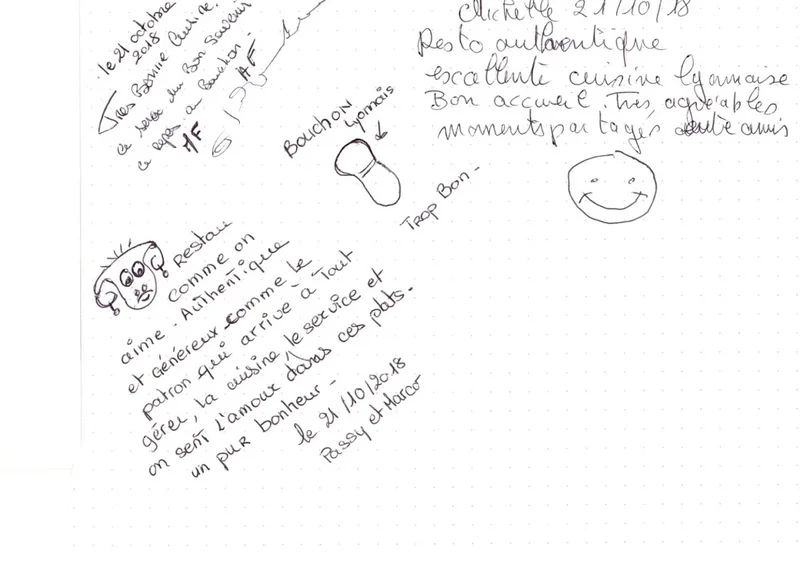 le 21 octobre
2018
Très Bonne Cuisine.
ce repas au Bouchon -
AF
AF
Bouchon
Lyonnais
Trop Bon -
Michelle 21/10/18
Resto authentique
excellente cuisine lyonnaise
Bon accueil. Très agréables
moments partagés entre amis
Restau
comme on
aime - Authentique
et Généreux comme le
patron qui arrive à tout
gérer, la cuisine, le service et
on sent l'amour dans ces plats.
un pur bonheur -
le 21/10/2018
Passy et Marco